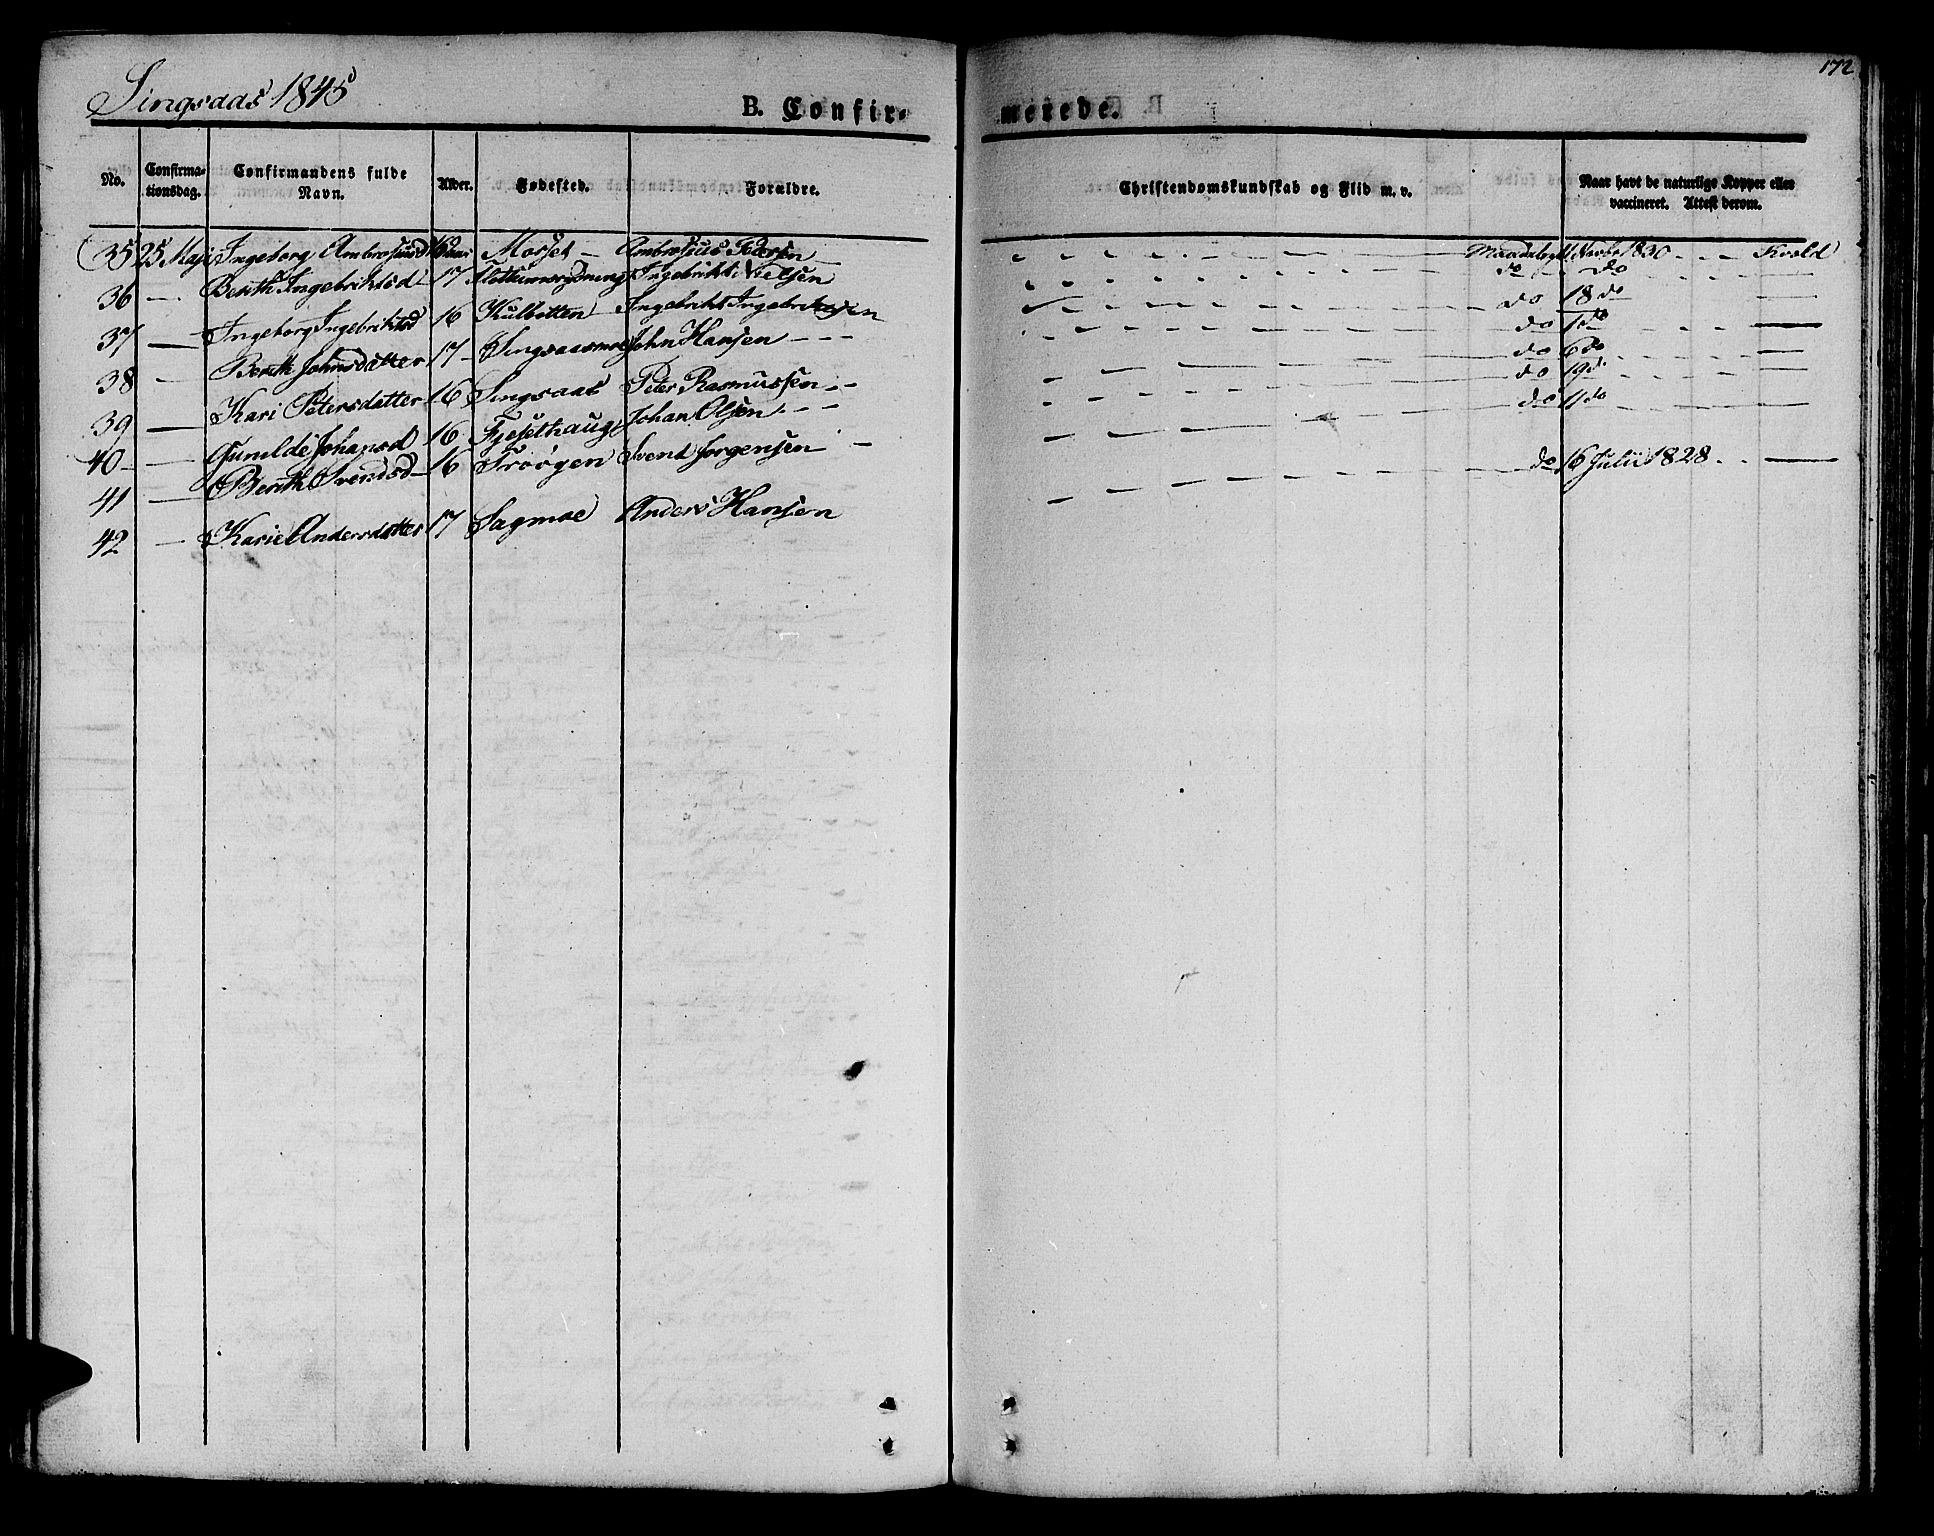 Singsaas 1845
172
B. Confirmerede.
No. Confirmationsdag. Confirmandens fulde Navn. Alder. Fødested. Forældre. Christendomskundskab og Flid m. v. Naar havt de naturlige Kopper eller vaccineret. Attest derom.
35 25 Maji Ingeborg Ambrosiusd 16 Morset Ambrosius 1830 Kvold
36 Berith Ingebriktsd 17 Ingebrikt Nielsen do do
37 Ingeborg Ingebriktsd 16 Kulbitten Ingebrikt Ingebriktsen do 18 do
38 Berith Johnsdatter 17 Singsaasmoe John Hansen do 1 do
39 Kari Petersdatter 16 Singsaas Peter Rasmussen do 6 do
40 Gunilde Johansd 16 Fjeselhaug Johan Olsen do 19 do
41 Berith Svendsd 16 Troøyen Svend Jorgensen do 11 do
42 Karie Andersdatter 17 Sagmoe Anders Hansen do 16 Julii 1828